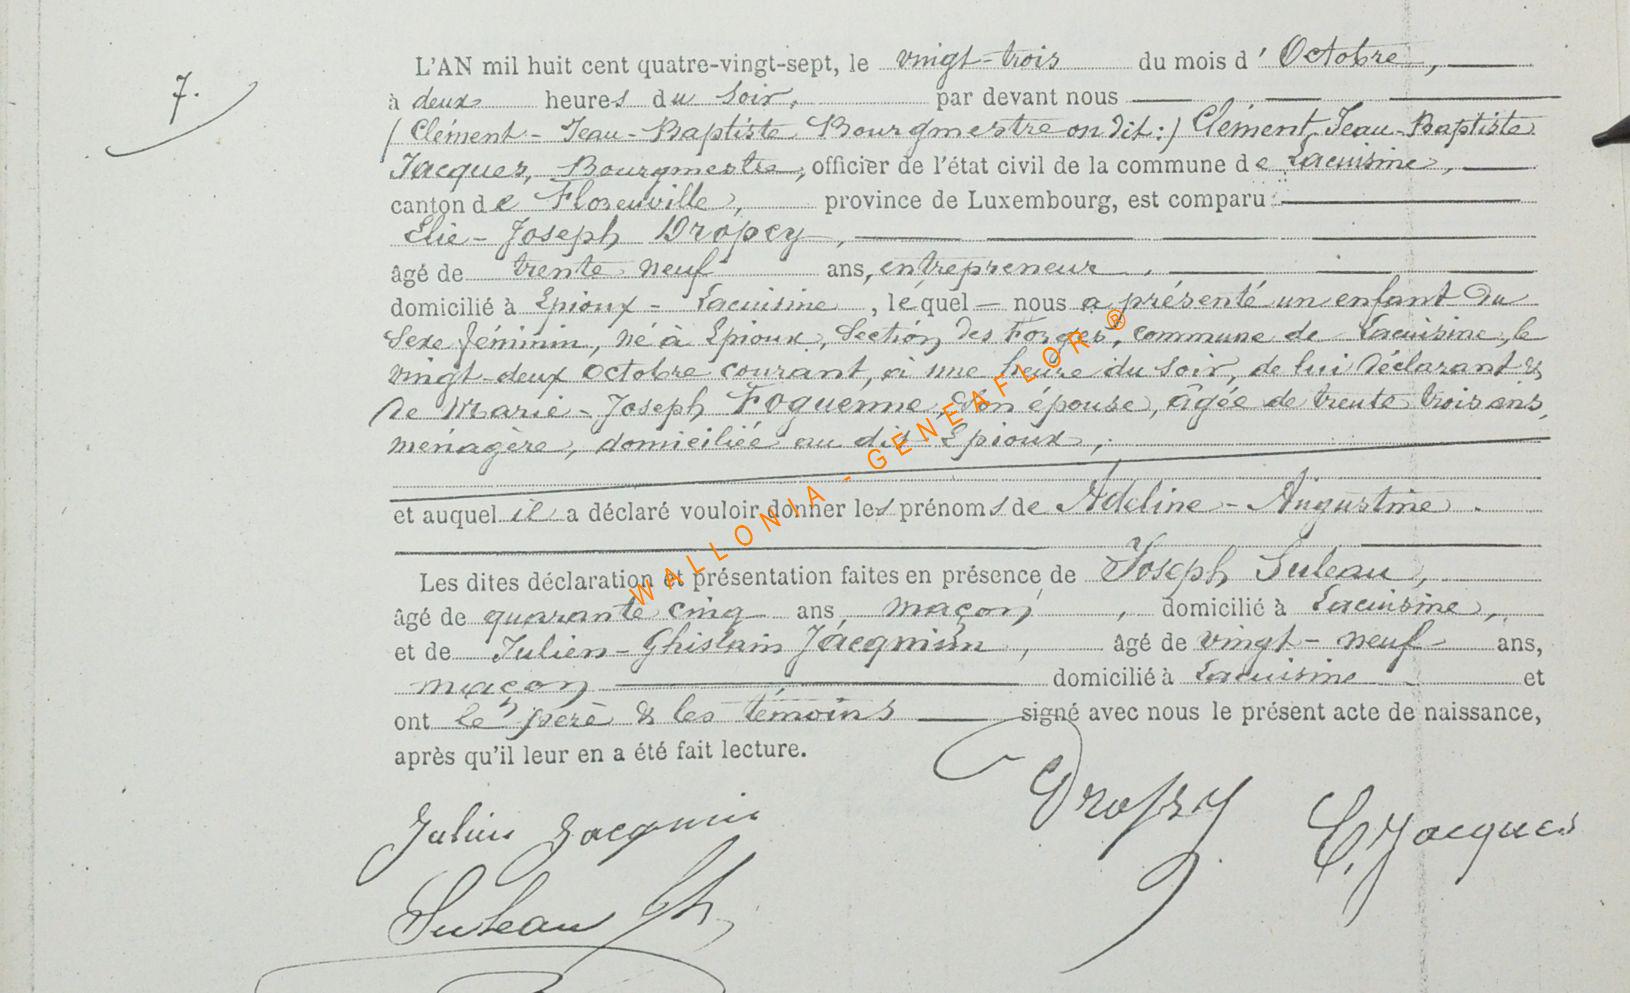 7.
L'AN mil huit cent quatre-vingt-sept, le vingt-trois du mois d' Octobre,
à deux heures du soir, par devant nous
(Clément-Jean-Baptiste Bourgmestre on dit:) Clément, Jean-Baptiste
Jacques, Bourgmestre, officier de l'état civil de la commune de Lacuisine,
canton de Florenville, province de Luxembourg, est comparu
Elie-Joseph Dropsy,
âgé de trente neuf ans, entrepreneur,
domicilié à Epioux-Lacuisine, lequel nous a présenté un enfant du
sexe féminin, né à Epioux, Section des Forges, commune de Lacuisine, le
vingt-deux octobre courant, à une heure du soir, de lui déclarant &
de Marie-Joseph Foguenne, son épouse, âgée de trente trois ans,
ménagère, domiciliée au dit Epioux,
et auquel il a déclaré vouloir donner les prénoms de Adeline-Augustine.
Les dites déclaration et présentation faites en présence de Joseph Suleau,
âgé de quarante cinq ans, maçon, domicilié à Lacuisine,
et de Julien-Ghislain Jacqmin, âgé de vingt-neuf ans,
maçon domicilié à Lacuisine et
ont le père & les témoins signé avec nous le présent acte de naissance,
après qu'il leur en a été fait lecture.
Dropsy
C. Jacques
Julien Jacqmin
Suleau Jh
WALLONIA - GENEAFLOR ®